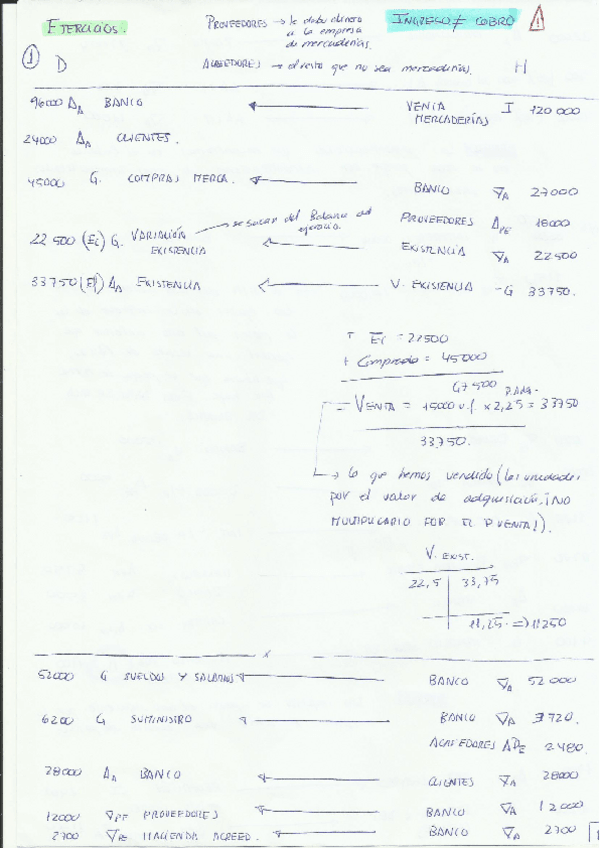 EJERCICIOS.
PROVEEDORES → le debo dinero a la empresa de mercaderías.
INGRESO ≠ COBRO
!
① D
ACREEDORES → el resto que no sea mercaderías.
H
96000 ΔA BANCO ← VENTA MERCADERÍAS I 120 000
24000 ΔA CLIENTES.
45000 G. COMPRAS MERCA. ← BANCO ∇A 27000
PROVEEDORES ΔPE 18000
22 500 (Ei) G. VARIACIÓN EXISTENCIA → se sacan del Balance del ejercicio.
← EXISTENCIA ∇A 22500
33750 (Ef) ΔA EXISTENCIA ← V. EXISTENCIA -G 33750.
+ Ei = 22500
+ Comprado = 45000
67 500
- VENTA = 15000 u.f. x 2,25 = 33750
33750.
→ lo que hemos vendido (las unidades
por el valor de adquisición, ¡NO
MULTIPLICARLO POR EL P VENTA!).
V. EXIST.
22,5 33,75
11,25 => 11250
x
52000 G SUELDOS Y SALARIOS ← BANCO ∇A 52000
6200 G SUMINISTRO ← BANCO ∇A 3720.
ACREEDORES ΔPE 2480.
28000 ΔA BANCO ← CLIENTES ∇A 28000
12000 ∇PE PROVEEDORES ← BANCO ∇A 12000
2700 ∇PE HACIENDA ACREED. ← BANCO ∇A 2700